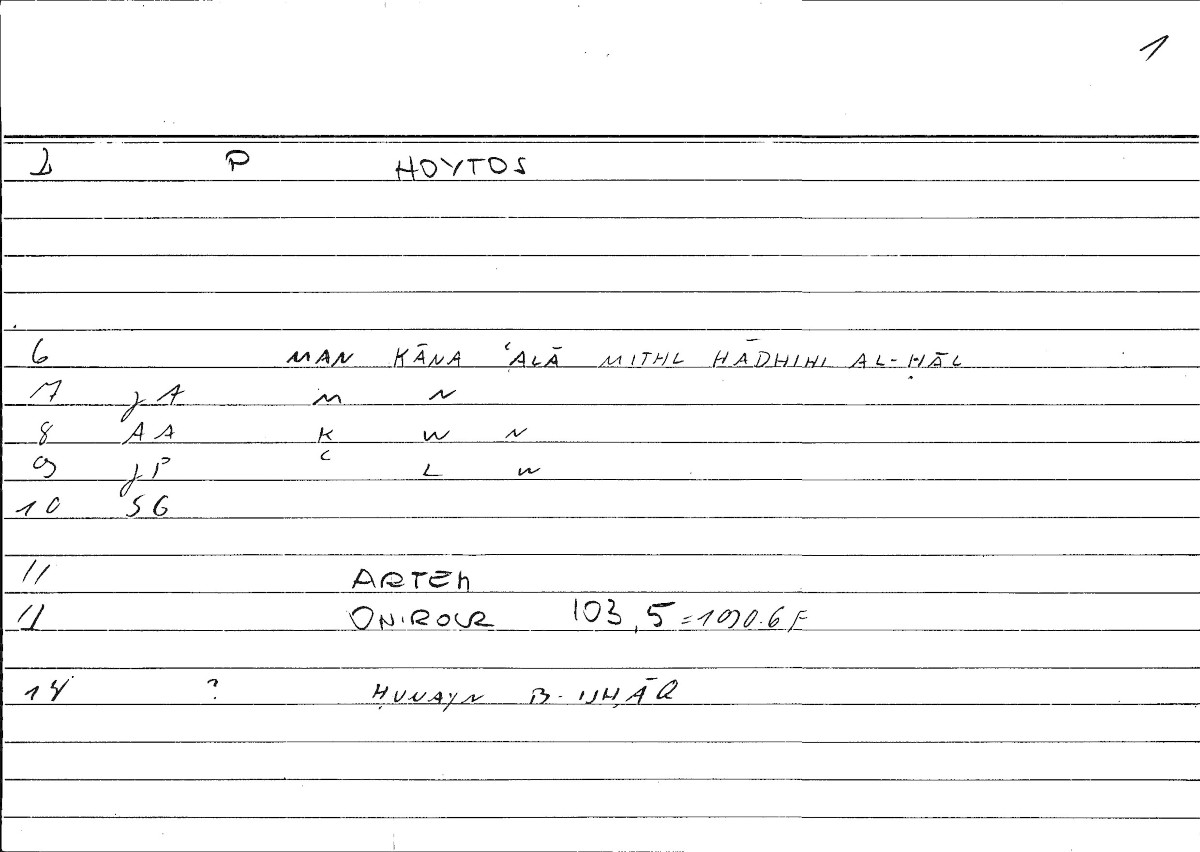 1
1 P HOYTOS
6 MAN KĀNA ʿALĀ MITHL HĀDHIHI AL-ḤĀL
7 JA M N
8 AA K W N
9 JP ʿ L W
10 SG
11 ARTEM
11 ONIROCR 103,5=190.6 F
14 ? ḤUNAYN B. ISḤĀQ